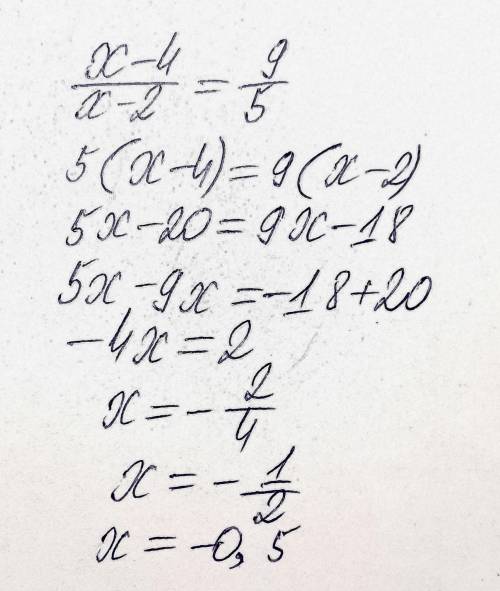 x-4/x-2 = 9/5
5(x-4)=9(x-2)
5x-20=9x-18
5x-9x=-18+20
-4x=2
x=-2/4
x=-1/2
x=-0,5